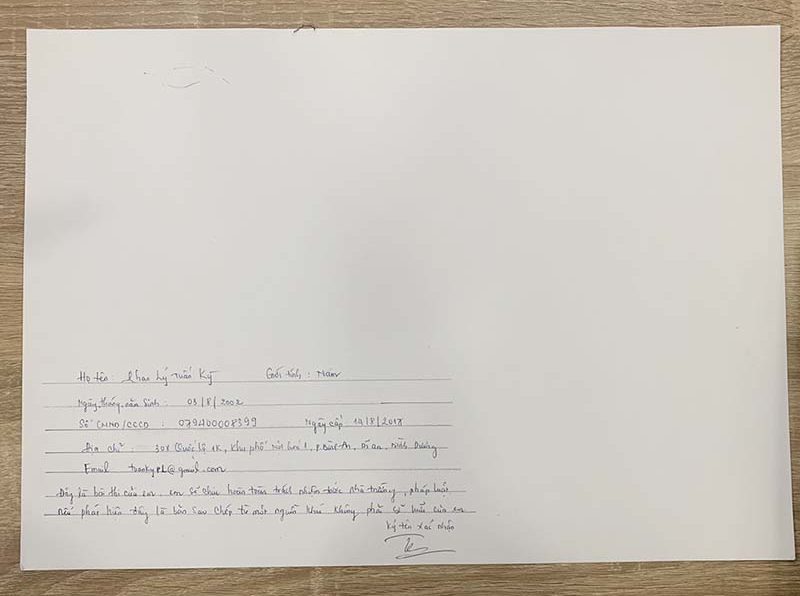 Họ tên: Lý Tuấn Kỳ Giới tính: Nam
Ngày, tháng, năm sinh: 03/8/2002
Số CMND/CCCD: 079400008399 Ngày cấp 14/8/2017
Địa chỉ: 301 Quốc lộ 1K, khu phố Nội hoá 1, P. Bình An, Dĩ an, Bình Dương
Email tuankypl@gmail.com
Đây là bài thi của em. em sẽ chịu hoàn toàn trách nhiệm trước nhà trường, pháp luật
nếu phát hiện đây là bản sao chép từ một người khác không phải sở hữu của em
Ký tên xác nhận